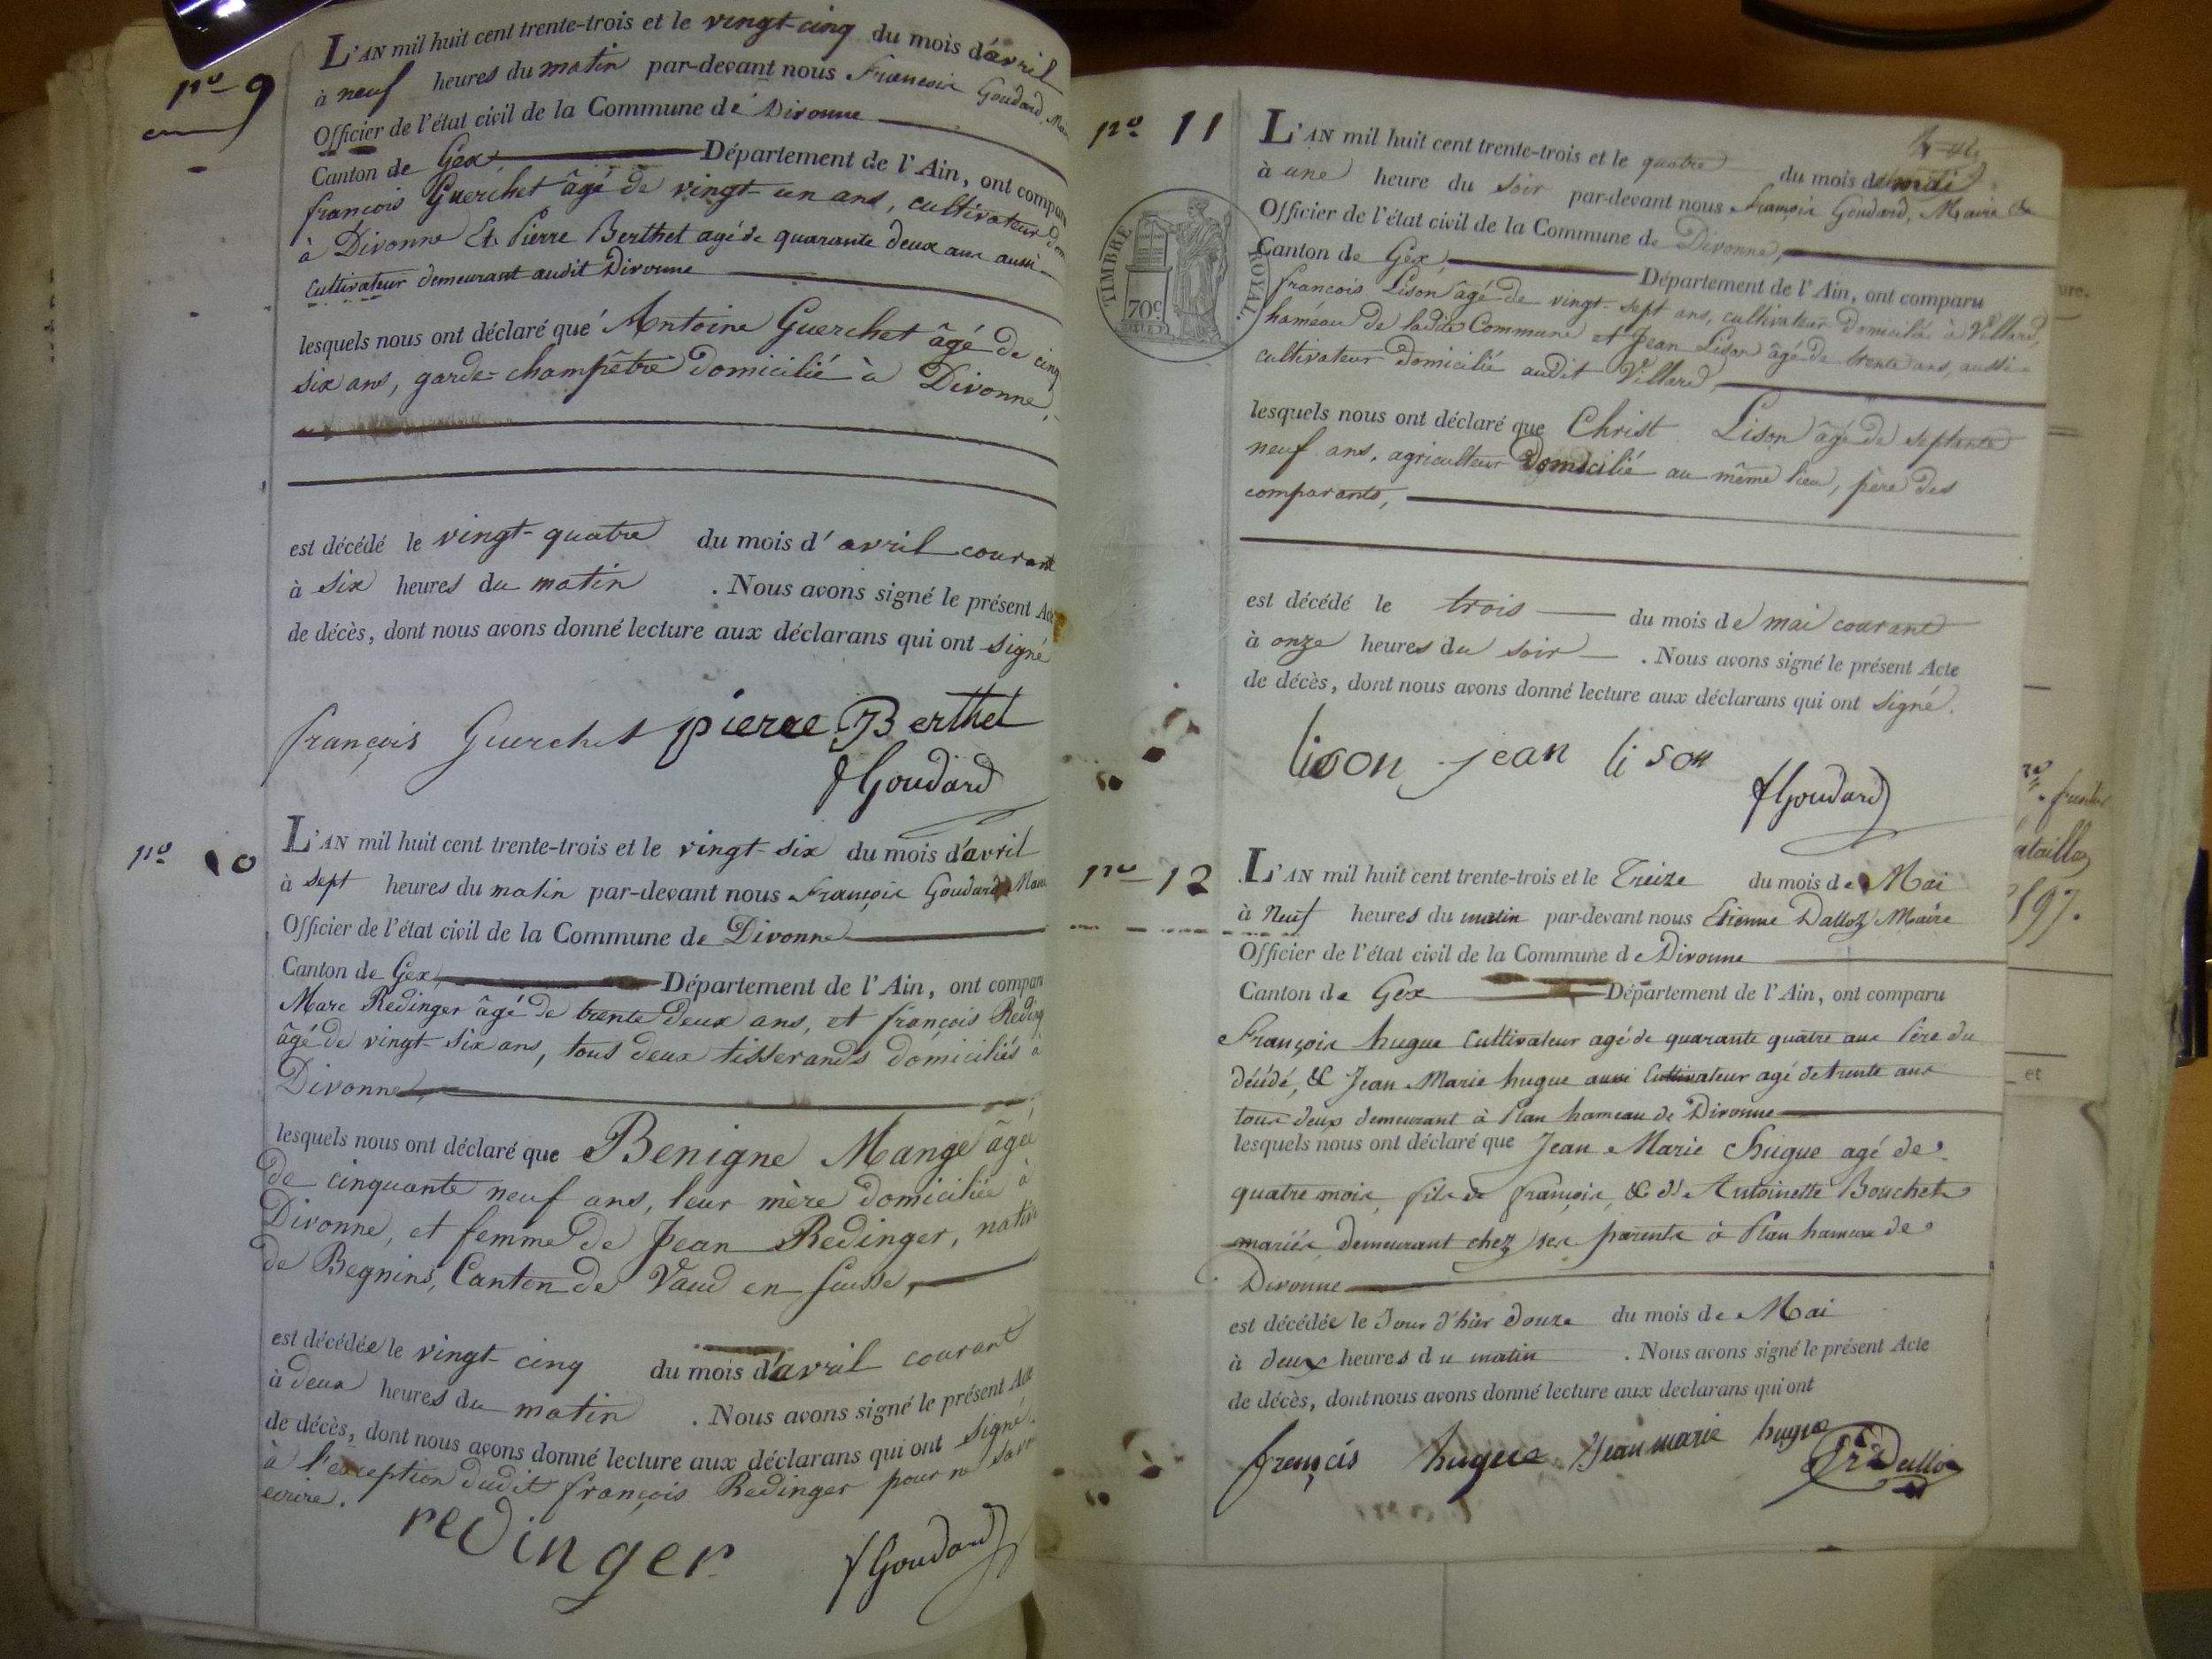 nº 9
L'AN mil huit cent trente-trois et le vingt-cinq du mois d'avril
à neuf heures du matin par-devant nous François Goudard,
Officier de l'état civil de la Commune de Divonne
Canton de Gex Département de l'Ain, ont compar
françois Guerchet âgé de vingt-un ans, cultivateur dom
à Divonne Et Pierre Berthet agé de quarante deux ans aussi
Cultivateur demeurant audit Divonne
lesquels nous ont déclaré que Antoine Guerchet âgé de cinq
six ans, garde-champêtre domicilié à Divonne,
est décédé le vingt-quatre du mois d'avril courant
à six heures du matin . Nous avons signé le présent Acte
de décès, dont nous avons donné lecture aux déclarans qui ont signé
françois Guerchet pierre Berthet
fGoudard
nº 10
L'AN mil huit cent trente-trois et le vingt-six du mois d'avril
à sept heures du matin par-devant nous François Goudard Maire
Officier de l'état civil de la Commune de Divonne
Canton de Gex, Département de l'Ain, ont comparu
Marc Redinger âgé de trente deux ans, et françois Reding
âgé de vingt-six ans, tous deux tisserands domiciliés à
Divonne,
lesquels nous ont déclaré que Benigne Mange âgée
de cinquante neuf ans, leur mère domiciliée à
Divonne, et femme de Jean Redinger, natif
de Begnins, Canton de Vaud en Suisse,
est décédée le vingt-cinq du mois d'avril courant
à deux heures du matin . Nous avons signé le présent Acte
de décès, dont nous avons donné lecture aux déclarans qui ont signé
à l'exception dudit françois Redinger pour ne savoir
ecrire.
redinger fGoudard
nº 11
L'AN mil huit cent trente-trois et le quatre du mois de mai
à une heure du soir par-devant nous François Goudard, Maire
Officier de l'état civil de la Commune de Divonne,
Canton de Gex, Département de l'Ain, ont comparu
francois Lison âgé de vingt-sept ans, cultivateur domicilié à Villard,
haméau de ladite Commune et Jean Lison âgé de trente ans, aussi
cultivateur domicilié audit Villard,
TIMBRE ROYAL.
70c
lesquels nous ont déclaré que Christ Lison âgé de septante
neuf ans, agriculteur domicilié au même lieu, père des
comparants,
est décédé le trois du mois de mai courant
à onze heures du soir . Nous avons signé le présent Acte
de décès, dont nous avons donné lecture aux déclarans qui ont signé.
lison jean lison
fGoudard
nº 12
L'AN mil huit cent trente-trois et le Treize du mois de Mai
à Neuf heures du matin par-devant nous Etienne Dalloz Maire
Officier de l'état civil de la Commune de Divonne
Canton de Gex Département de l'Ain, ont comparu
François hugue Cultivateur agé de quarante quatre ans Père du
décédé, & Jean Marie hugue aussi Cultivateur agé de trente ans
tous deux demeurant à Plan hameau de Divonne
lesquels nous ont déclaré que Jean Marie hugue agé de
quatre mois, fils de François, & d'Antoinette Bouchet
mariés, demeurant chez ses parents à Plan hameau de
Divonne
est décédée le Jour d'hier douze du mois de Mai
à deux heures du matin . Nous avons signé le présent Acte
de décès, dont nous avons donné lecture aux declarans qui ont
françois hugue Jean marie hugue
197.
et